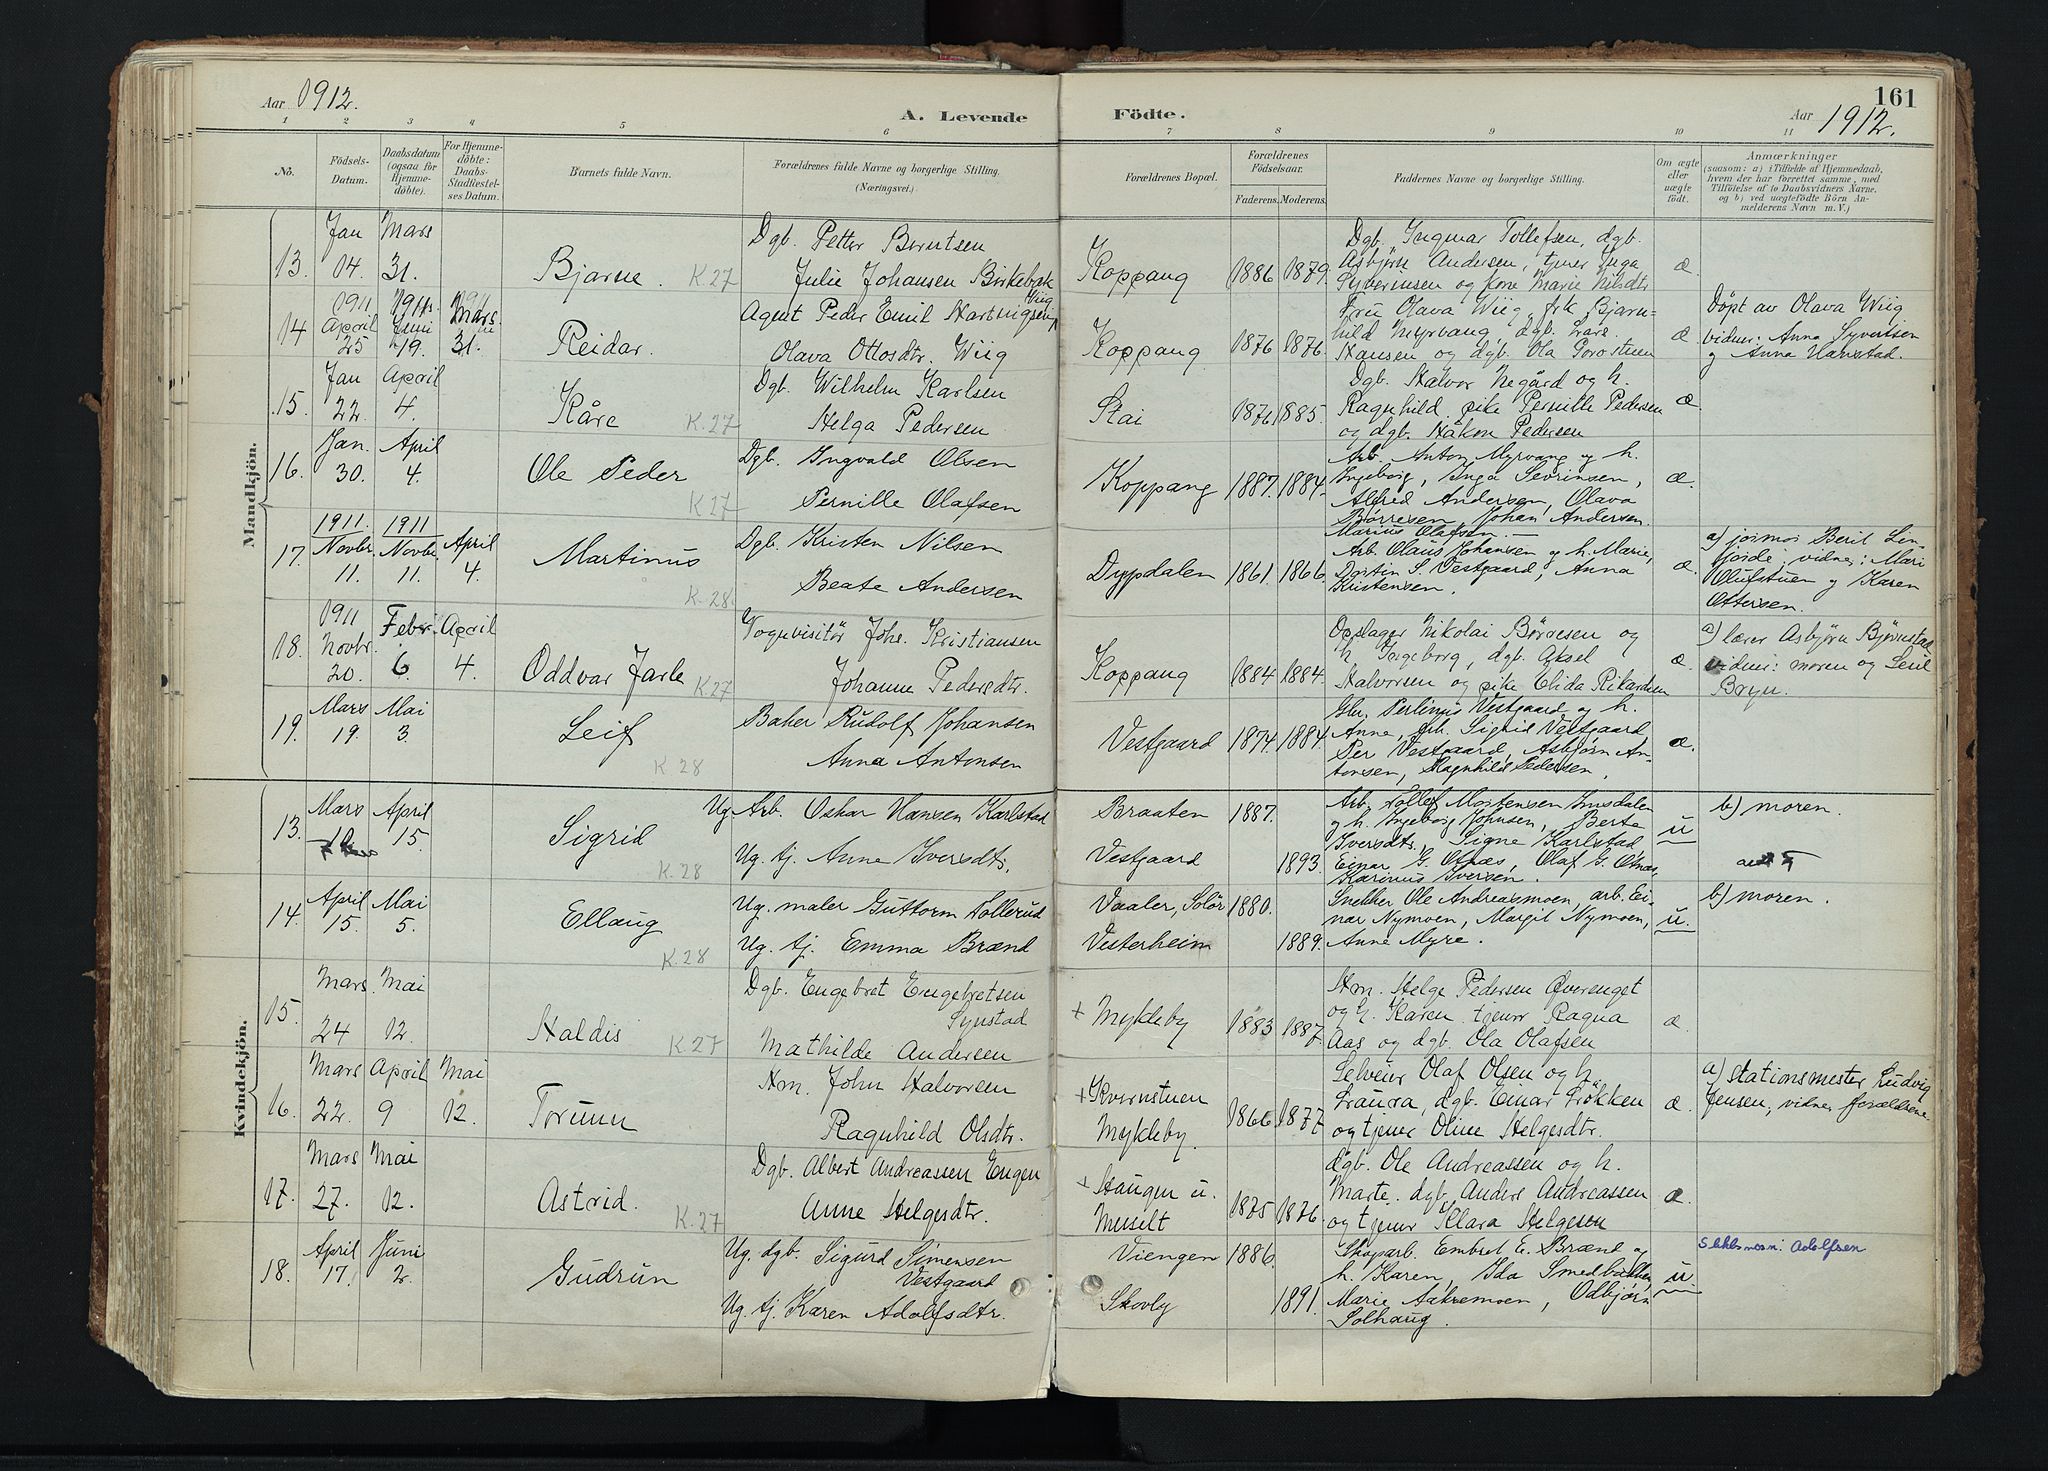 Aar 1912. A. Levende Födte. Aar 1912. 161
1 2 3 4 5 6 7 8 9 10 11
No. Födsels-Datum. Daabsdatum (ogsaa for Hjemme-döbte). For Hjemme-döbte: Daabs-Stadfæstel-ses Datum. Barnets fulde Navn. Forældrenes fulde Navne og borgerlige Stilling. (Næringsvei.) Forældrenes Bopæl. Forældrenes Födselsaar. Faderens. Moderens. Faddernes Navne og borgerlige Stilling. Om ægte eller uægte födt. Anmærkninger (saasom: a) i Tilfælde af Hjemmedaab, hvem der har forrettet samme, med Tilföielse af to Daabsvidners Navne, og b) ved uægtefödte Börn An-melderens Navn m. V.)
Mandkjön.
13. Jan 14. Mars 31. Bjarne K 27
Dgb. Petter Berntsen
Julie Johansen Birkebæk
Koppang 1886 1879.
Dgb. Ingmar Tollefsen, dgb.
Asbjørn Andersen, tjener Inga
Syverinsen og kone Marie Nilsdtr
æ.
14 1911 April 25 1911 Juni 19. Mars 31. Reidar.
Agent Peder Emil Hartvigsen Wiig
Olava Ottosdtr. Wiig
Koppang 1876 1876.
Fru Olava Wiig, frk Bjarn-
hild Myrvang dgb. Lars
Hansen og dgb. Ola
æ
Döpt av Olava Wiig
vidner: Anna Syvertsen
og Anna Harstad.
15. Jan 22. April 4. Kåre K.27
Dgb. Wilhelm Karlsen
Helga Pedersen
Stai 1876 1885.
Dgb. Halvor Negård og h.
Ragnhild, pike Pernille Pedersen
og dgb. Håkon Pedersen
æ.
16. Jan. 30. April 4. Ole Peder K.27
Dgb. Ingvald Olsen
Pernille Olafsen
Koppang 1887. 1884.
Arb. Anton Myrvang og h.
Ingeborg, Inga Sevrinsen,
Alfred Andersen, Olava
Börresen, Johan Andersen.
Marius Olafsen. —
æ.
17. 1911. Novbr. 11. 1911 Novbr. 11. April 4. Martinus K.28.
Dgb. Kristen Nilsen
Beate Andersen
Drypdalen 1861. 1866.
Arb. Olaus Johansen og h. Marie,
Ostin S. Vestgaard, Anna
Kristensen.
æ.
a) jormor Beril Lin-
fjorde; vidner: Mari
Olufstuen og Karen
Ottersen.
18. 1911 Novbr. 20. Febr. 6. April 4. Oddvar Jarle K 27
Vognvisitör Johs. Kristiansen
Johanne Pedersdtr.
Koppang 1884 1884.
Opslager Nikolai Börresen og
h Ingeborg, dgb. Aksel
Halvorsen og pike Elida Rikardsen
æ.
a) lærer Asbjørn Bjørnstad
vidner: moren og
Bryn.
19. Mars 19. Mai 3. Leif K 28
Baker Rudolf Johansen
Anna Antonsen
Vestgaard 1874. 1884.
Gbr. Perlinus Vestgaard og h.
Anne, arb. Sigrid Vestgaard,
Per Vestgaard, Asbjørn An-
tonsen, Ragnhild Pedersen.
æ.
Kvindekjön.
13. Mars 10 April 15. Sigrid K. 28
Ug. Arb. Oskar Hansen Karlstad
Ug. tj. Anne Iversdtr.
Braaten 1887.
Vestgaard 1893.
Arb. Tollef Mortensen Imsdalen
og h. Ingeborg Johnsen, Berte
Iversdtr., Signe Karlstad
Einar G. Otnæs, Olaf G. Otnæs,
Karinus Iversen.
u
b) moren.
14. April 15. Mai 5. Ellaug K.28
Ug. maler Guttorm Tollerud
Ug. tj. Emma Brænd
Vaaler, Solör 1880.
Vesterheim 1889.
Snekker Ole Andreasmoen, arb. Ei-
nar Nymoen, Margit Nymoen,
Anne Myre.
u.
b) moren.
15. Mars. 24 Mai 12. Haldis K.27
Dgb. Engebret Engebretsen
Synstad
Mathilde Andersen
+ Mykleby 1883 1887.
Hm. Helge Pedersen Øverenget
og h. Karen tjener Ragna
Aas og dgb. Ola Olafsen
æ.
16. Mars 22. April 9 Mai 12. Torunn
Hm. John Halvorsen
Ragnhild Olsdtr.
+ Kvernstuen
Mykleby. 1866 1877
Selveier Olaf Olsen og h.
Laura, dgb. Einar Løkken
og tjener Oline Helgesdtr.
æ.
a) stationsmester Ludvig
Jensen, vidner forældrene
17. Mars 27. Mai 12. Astrid. K.27
Dgb. Albert Andreassen Engen
Anne Helgesdtr.
+ Haugen u.
Messelt 1875 1876.
dgb. Ole Andreassen og h.
Marte. dgb. Anders Andreassen
og tjener Klara Helgesen
æ.
18. April 17. Juni 2. Gudrun
Ug. dgb. Sigurd Simensen
Vestgaard
Ug. tj. Karen Adolfsdtr.
Viengen 1886.
Skovly 1891.
Skogarb. Embret E. Brænd og
h. Karen, Ida Smedbakken
Marie Aakremoen, Odbjørn
Solhaug.
u
Adolfsen